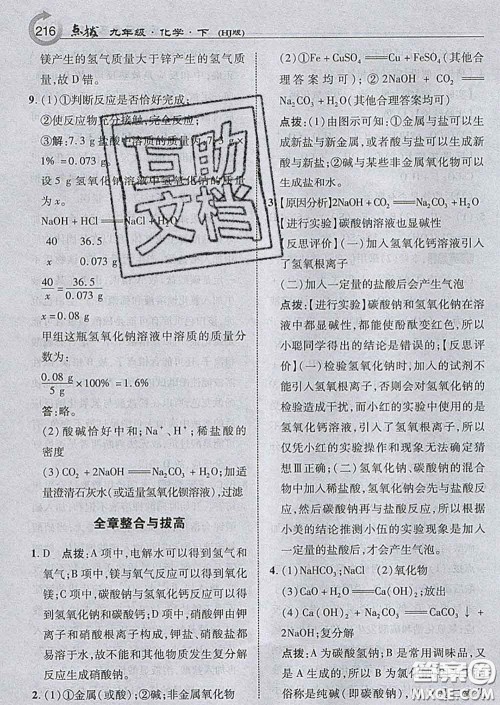 216 点拨 九年级·化学·下 (HJ版)
镁产生的氢气质量大于锌产生的氢气质
量,故 D 错。
9. (1)①判断反应是否恰好完成;
②使反应物充分接触,完全反应;
③解:7.3 g 盐酸中溶质的质量为
1%=0.073 g
设 5 g 氢氧化钠溶液中氢氧化钠的质量为
x。
NaOH+HCl═══NaCl+H₂O
40 36.5
x 0.073 g
40/x=36.5/0.073 g
x=0.08 g
甲组这瓶氢氧化钠溶液中溶质的质量分
数为:
0.08 g/5 g×100%=1.6%
答:略。
(2)酸碱恰好中和;Na⁺、H⁺;稀盐酸的
密度
(3)CO₂+2NaOH═══Na₂CO₃+H₂O;加适
量澄清石灰水(或适量氢氧化钡溶液),过滤
全章整合与拔高
1. D 点拨:A 项中,电解水可以得到氢气和
氧气;B 项中,镁与氧气反应可以得到氧化
镁;C 项中,氢氧化钠与硝酸钙不反应,不
能得到氢氧化钙;D 项中,硝酸钾由钾
离子和硝酸根离子构成,钾盐、硝酸盐都易
溶于水,故不能通过盐与盐反应,得到
且无其他现象。
2. (1)①金属(或酸);②碱;非金属氧化物
(2)①Fe+CuSO₄═══Cu+FeSO₄(其他合
理答案均可) ②2NaOH+CO₂═══
Na₂CO₃+H₂O(其他合理答案均可)
点拨:(1)由图示可知:①金属与盐可以生成
新金属与新盐,或者酸与盐可以生成
新酸与新盐;②碱与某些非金属氧化物可以
生成盐和水。
3.【原因分析】2NaOH+CO₂═══Na₂CO₃+H₂O
【进行实验】碳酸钠溶液也显碱性
【反思评价】(一)加入氢氧化钙溶液引入
了氢氧根离子
(二)加入一定量的盐酸后会产生气泡
点拨:【进行实验】碳酸钠和氢氧化钠在溶
液中都显碱性,都能使酚酞变红色,所以
小聪同学得出的结论是错误的;【反思评
价】(一)检验氢氧化钠时,加入的试剂不
能引入氢氧根离子,否则会对氢氧化钠的
检验造成干扰,而小红的实验中使用的是
氢氧化钙,其中也含有氢氧根离子,所以
仅凭小红的实验操作和现象无法确定猜
想Ⅲ正确;(二)在氢氧化钠、碳酸钠的混
合物中加入稀盐酸,盐酸会先与氢氧化钠
反应,再与碳酸钠反应产生气泡,所以根据
小美的结论推测小伍的实验现象是加入
一定量的盐酸后,才会产生气泡。
4. (1)NaHCO₃;NaCl (2)氧化物
(3)CaO+H₂O═══Ca(OH)₂;放出
(4)Ca(OH)₂+Na₂CO₃═══CaCO₃↓+
2NaOH;复分解
点拨:A 为碳酸氢钠,